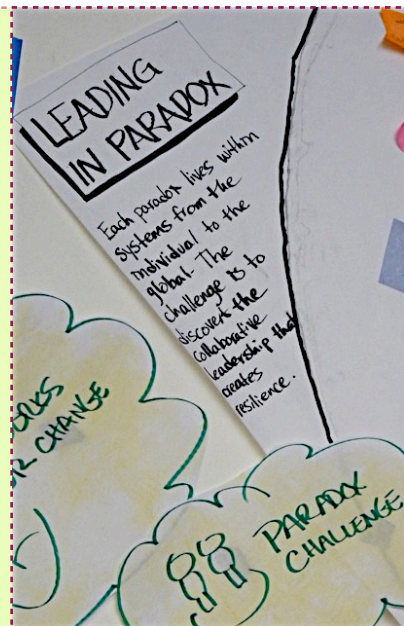 LEADING
IN PARADOX
Each paradox lives within
systems from the
individual to the
global. The
challenge is to
discover the
collaborative
leadership that
creates
resilience.
CHANGE
PARADOX
CHALLENGE